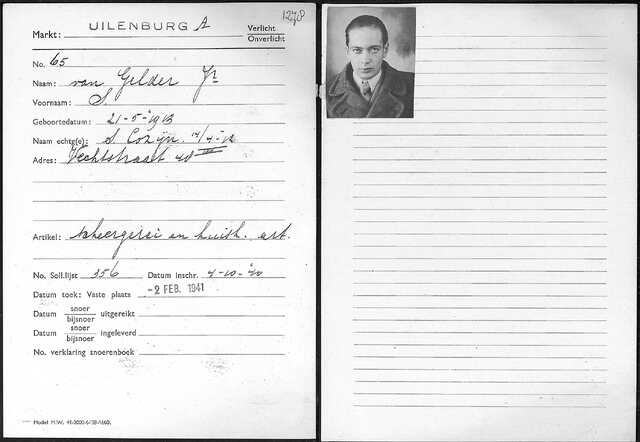 1270
Markt: UILENBURG A Verlicht
Onverlicht
No. 65
Naam: van Gelder Jr
Voornaam: S.
Geboortedatum: 21-5-1913
Naam echtg(e): S. Conijn. 14/4-12
Adres: Vechtstraat 40 III
Artikel: scheergerei en huish. art.
No. Soll.lijst 356 Datum inschr. 4-10-'40
Datum toek: Vaste plaats -2 FEB. 1941
Datum snoer
bijsnoer uitgereikt
Datum snoer
bijsnoer ingeleverd
No. verklaring snoerenboek
Model M.W.